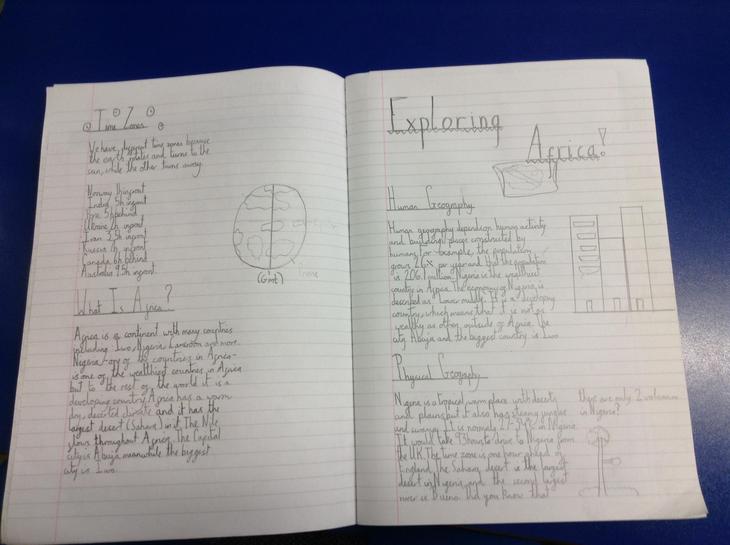 Time Zones
We have different time zones because
the earth rotates and turns to the
sun, while the other turns away.
Norway 1h infront
India 5h infront
Peru 5h behind
Ukraine 2h infront
Iran 3.5h infront
Russia infront
Canada 6h behind
Australia 9.5h infront.
(Gmt)
What Is Africa?
Africa is a continent with many countries
including: Iwo, Nigeria, Cameroon and more.
Nigeria -one of the countries in Africa-
is one of the wealthiest countries in Africa
but to the rest of the world it is a
developing country. Africa has a warm
dry, deserted climate and it has the
largest desert (Sahara) in it. The Nile
flows throughout Africa. The Capital
city is Abuja meanwhile the biggest
city is Iwo.
Exploring
Africa!
Human Geography
Human geography depends on human activity
and buildings/places constructed by
humans, for example, the population
grows 2.6% per year and that the population
is 206.1 million. Nigeria is the wealthiest
country in Africa. The economy of Nigeria is
described as lower middle. It is a developing
country, which means that it is not as
wealthy as other outside of Africa. The
city Abuja and the biggest country is Iwo.
Physical Geography
Nigeria is a tropical, warm place with deserts
and plains but it also has steamy jungle
and swamp. It is normaly 21-34°c in Nigeria.
It would take 93 hours to drive to Nigeria from
the U.K. The time zone is one hour ahead of
England. The Sahara desert is the largest
desert in Nigeria and the second largest
river is Benue. Did you know that
there are only 2 volcanoes
in Nigeria?